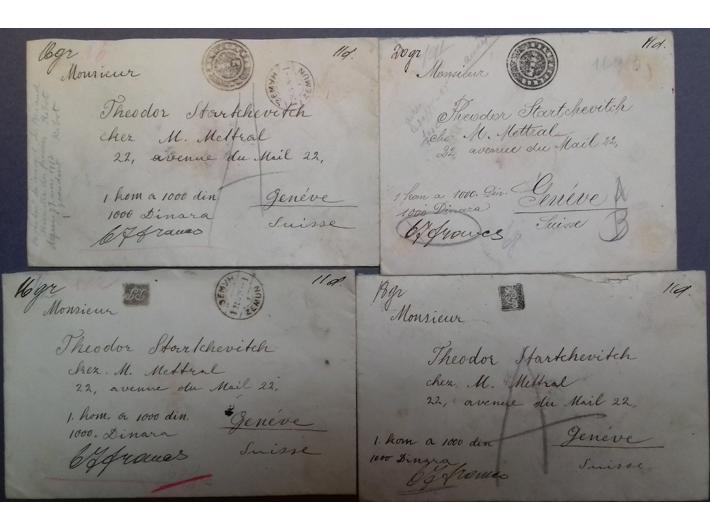 16gr
11d.
Monsieur
ЗЕМУН
ZEMUN
Theodor Startchevitch
chez M. Mettral
22, avenue du Mail 22,
1 kom a 1000 din
1000 Dinara
Genéve
67 francs
Suisse
20gr
11d.
Monsieur
Theodor Startchevitch
chez M. Mettral
22, avenue du Mail 22,
1 kom a 1000. Din
1000 Dinara
Genéve
A
67 francs
Suisse
B
16gr
11d
Monsieur
ЗЕМУН
ZEMUN
Theodor Startchevitch
chez. M. Mettral
22, avenue du Mail 22,
1. kom a 1000 din.
1000. Dinara
Genéve
67 francs
Suisse
18gr
11d.
Monsieur
Theodor Startchevitch
chez M. Mettral
22, avenue du Mail 22,
1. kom a 1000 din
1000 Dinara
Genéve
67 francs
Suisse